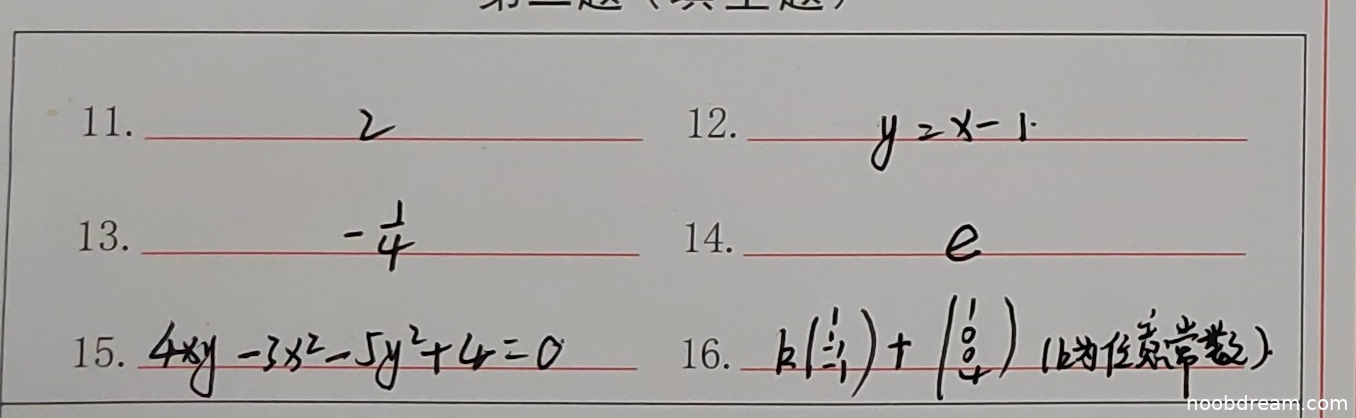 第二题（填空题）
11. 2 12. y = x - 1.
13. -1/4 14. e
15. 4xy - 3x² - 5y² + 4 = 0 16. k(1 1 -1 -1) + (1 0 0 4) (k为任意常数).
noobdream.com